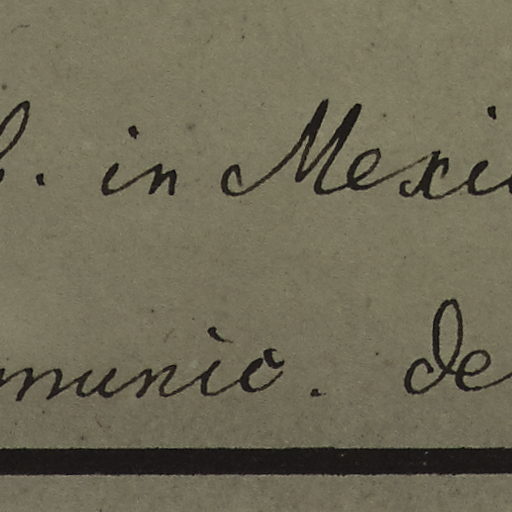 . in Mexic
munic. de